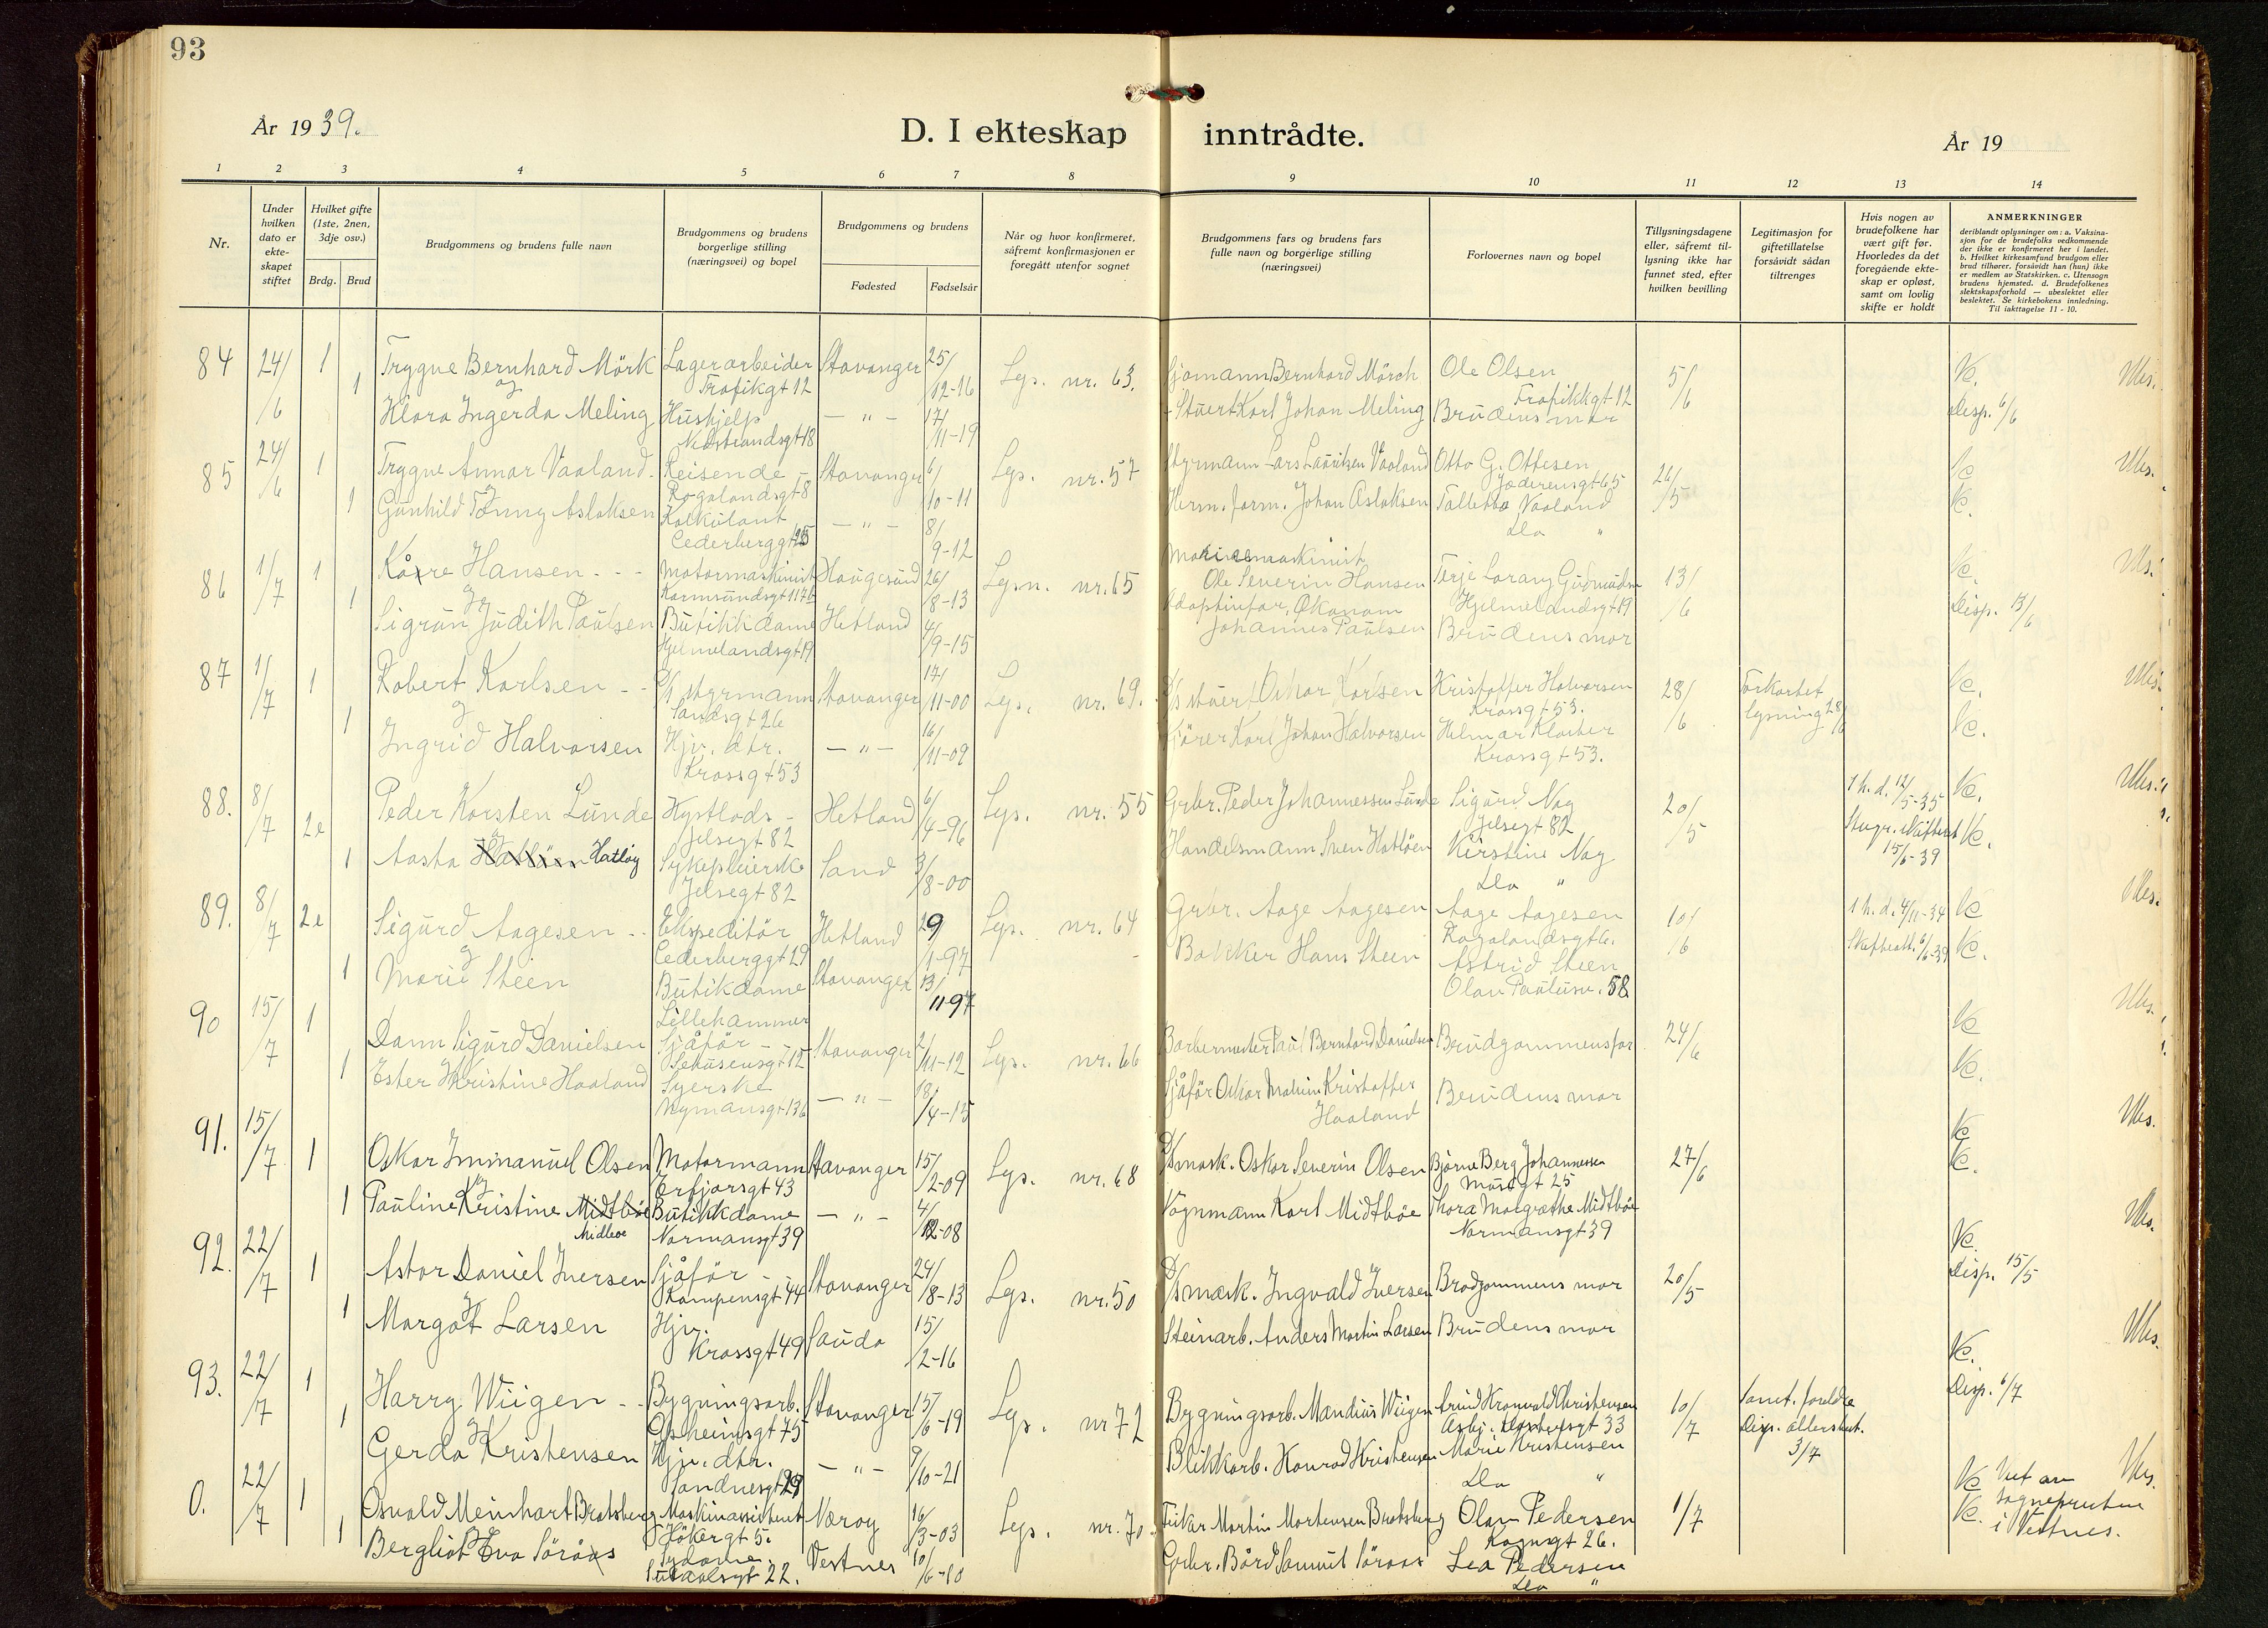 93
År 1939.
D. I ekteskap inntrådte.
År 19
1 2 3 4 5 6 7 8 9 10 11 12 13 14
Nr.
Under hvilken dato er ekte-skapet stiftet
Hvilket gifte (1ste, 2nen, 3dje osv.)
Brdg. Brud
Brudgommens og brudens fulle navn
Brudgommens og brudens borgerlige stilling (næringsvei) og bopel
Brudgommens og brudens
Fødested Fødselsår
Når og hvor konfirmeret, såfremt konfirmasjonen er foregått utenfor sognet
Brudgommens fars og brudens fars fulle navn og borgerlige stilling (næringsvei)
Forlovernes navn og bopel
Tillysningsdagene eller, såfremt til-lysning ikke har funnet sted, efter hvilken bevilling
Legitimasjon for giftetillatelse forsåvidt sådan tiltrenges
Hvis nogen av brudefolkene har vært gift før. Hvorledes da det foregående ekte-skap er opløst, samt om lovlig skifte er holdt
ANMERKNINGER
deriblandt oplysninger om: a. Vaksina-sjon for de brudefolks vedkommende der ikke er konfirmeret her i landet. b. Hvilket kirkesamfund brudgom eller brud tilhører, forsåvidt han (hun) ikke er medlem av Statskirken. c. Utensogn brudens hjemsted. d. Brudefolkenes slektskapsforhold — ubeslektet eller beslektet. Se kirkebokens innledning. Til iakttagelse 11 - 10.
84 24/6 1 Trygve Bernhard Mörk Lagerarbeider Trafikgt 12 Stavanger 25/12-16 Lys. nr. 63. Sjømann Bernhard Mörch Ole Olsen Trafikkgt 12 5/6 Vc. Ubs.
og
1 Klara Ingerda Meling Hushjelp Nedstrandsgt 18 — " — 17/11-19 Stuert Karl Johan Meling Brudens mor Disp. 6/6
85 24/6 1 Trygve Annar Vaaland Reisende Rogalandsgt 8 Stavanger 6/10-11 Lys. nr. 57 Styrmann Lars Lauritzen Vaaland Otto G. Ottesen Jæderensgt 65 26/5 Vc Ubs.
og
1 Gunhild Fanny Aslaksen Kalkulant Cederberggt 25 — " — 8/9-12 Herm. form. Johan Aslaksen Talletta Vaaland Do " Vc.
86 1/7 1 Kåre Hansen Motormaskinist Karmsundsgt 117b Haugesund 26/8-13 Lysn. nr. 65 Marinemaskinist Ole Severin Hansen Terje Lorang Gudmundsn Hjelmelandsgt 19 13/6 Vc. Ubs.
og
1 Sigrun Judith Paulsen Butikkdame Hjelmelandsgt 19 Hetland 4/9-15 Adoptivfar, Økonom Johannes Paulsen Brudens mor Disp. 13/6
87 1/7 1 Robert Karlsen D/S styrmann Sandsgt 26 Stavanger 17/11-00 Lys. nr. 69. D/S stuert Oskar Karlsen Kristoffer Halvorsen Krossgt 53. 28/6 Forkortet lysning 28/6 Vc. Ubs.
og
1 Ingrid Halvorsen Hjv. dtr. Krossgt 53 — " — 16/11-09 Kjörer Karl Johan Halvorsen Helmar Kloster Krossgt 53. Vc.
88. 8/7 2e Peder Korsten Lunde Kystlods Jelsegt 82 Hetland 6/4-96 Lys. nr. 55 Grbr. Peder Johannessen Lunde Sigurd Nag Jelsegt 82 20/5 1 h. d. 12/5-35 Vc. Ubs.
og
1 Aasta Hatløy Sykepleierske Jelsegt 82 Sand 3/8-00 Handelsmann Sven Hatlöen Kirstine Nag Do " 15/6-39 Vc.
89. 8/7 2e Sigurd Aagesen Ekspeditör Cederberggt 29 Hetland 29/1-97 Lys. nr. 64 Grbr. Aage Aagesen Aage Aagesen Rogalandsgt 6. 10/6 1 h. d. 4/11-34 Vc Ubs.
og
1 Marie Steen Butikdame Lillehammer Stavanger 13/11 97 Bøkker Hans Steen Astrid Steen Olav Paulusn. 58 Skifteatt. 6/6-39 Vc.
90 15/7 1 Dann Sigurd Danielsen Sjåför Sehusensgt 12 Stavanger 2/11-12 Lys. nr. 66 Barbermester Paul Bernhard Danielsen Brudgommens far 24/6 Vc Ubs.
1 Ester Kristine Haaland Syerske Nymansgt 136 — " — 18/4-15 Sjåför Oskar Malvin Kristoffer Haaland Brudens mor Vc.
91. 15/7 1 Oskar Immanuel Olsen Motormann Erfjorsgt 43 Stavanger 15/2-09 Lys. nr. 68 D/S mask. Oskar Severin Olsen Bjarne Berg Johannessen Musegt 25 27/6 Vc Ubs.
og
1 Pauline Kristine Midtböe Midleoe Butikkdame Normansgt 39 — " — 4/12-08 Vognmann Karl Midtböe Thora Margrethe Midtböe Normansgt 39 Vc.
92. 22/7 1 Astor Daniel Iversen Sjåför Kampensgt 44 Stavanger 24/8-13 Lys. nr. 50 D/S mask. Ingvald Iversen Brudgommens mor 20/5 Vc. Ubs.
og
1 Margot Larsen Hjv. Krossgt 49 Sauda 15/2-16 Steinarb. Anders Martin Larsen Brudens mor Disp. 15/5
93. 22/7 1 Harry Wiigen Bygningsarb. Opheimsgt 75 Stavanger 15/6-19 Lys. nr 72 Bygningsarb. Mandius Wiigen Kristensen Asbj. Klostersgt 33 10/7 Samt. foreldre Vc. Ubs.
og
1 Gerda Kristensen Hjv. dtr. Sandnesgt 29 — " — 9/10-21 Blikkarb. Konrad Kristensen Marie Kristensen Do " Disp. alderstut. 3/7 Disp. 6/7
0. 22/7 1 Osvald Meinhart Bratsberg Maskinassistent Jökergt 5. Nærøy 16/3-03 Lys. nr. 70 Fisker Martin Mortensen Bratsberg Olav Pedersen Kongsgt 26. 1/7 Vc Vut av sognepresten i Vestnes. Ubs.
og
1 Bergliot Eva Söraas Sydame 22. Vestnes 10/6-10 Grbr. Bård Samuel Söraas Lea Pedersen Do " Vc.